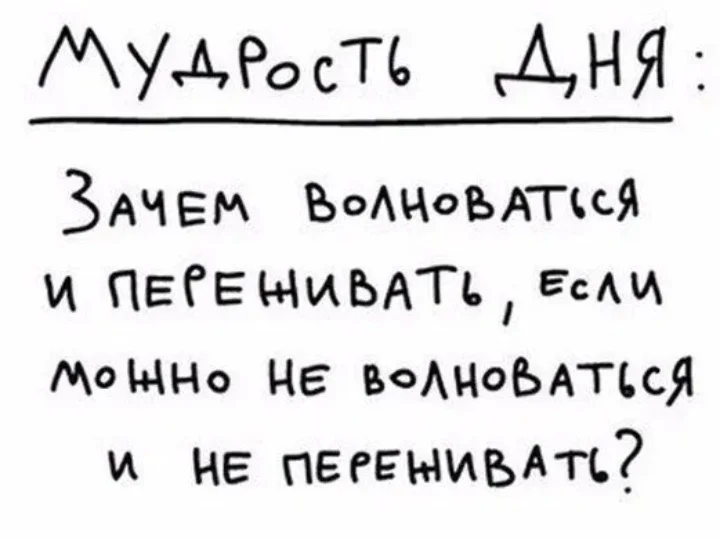 Мудрость Дня:
Зачем волноваться
и переживать, если
можно не волноваться
и не переживать?